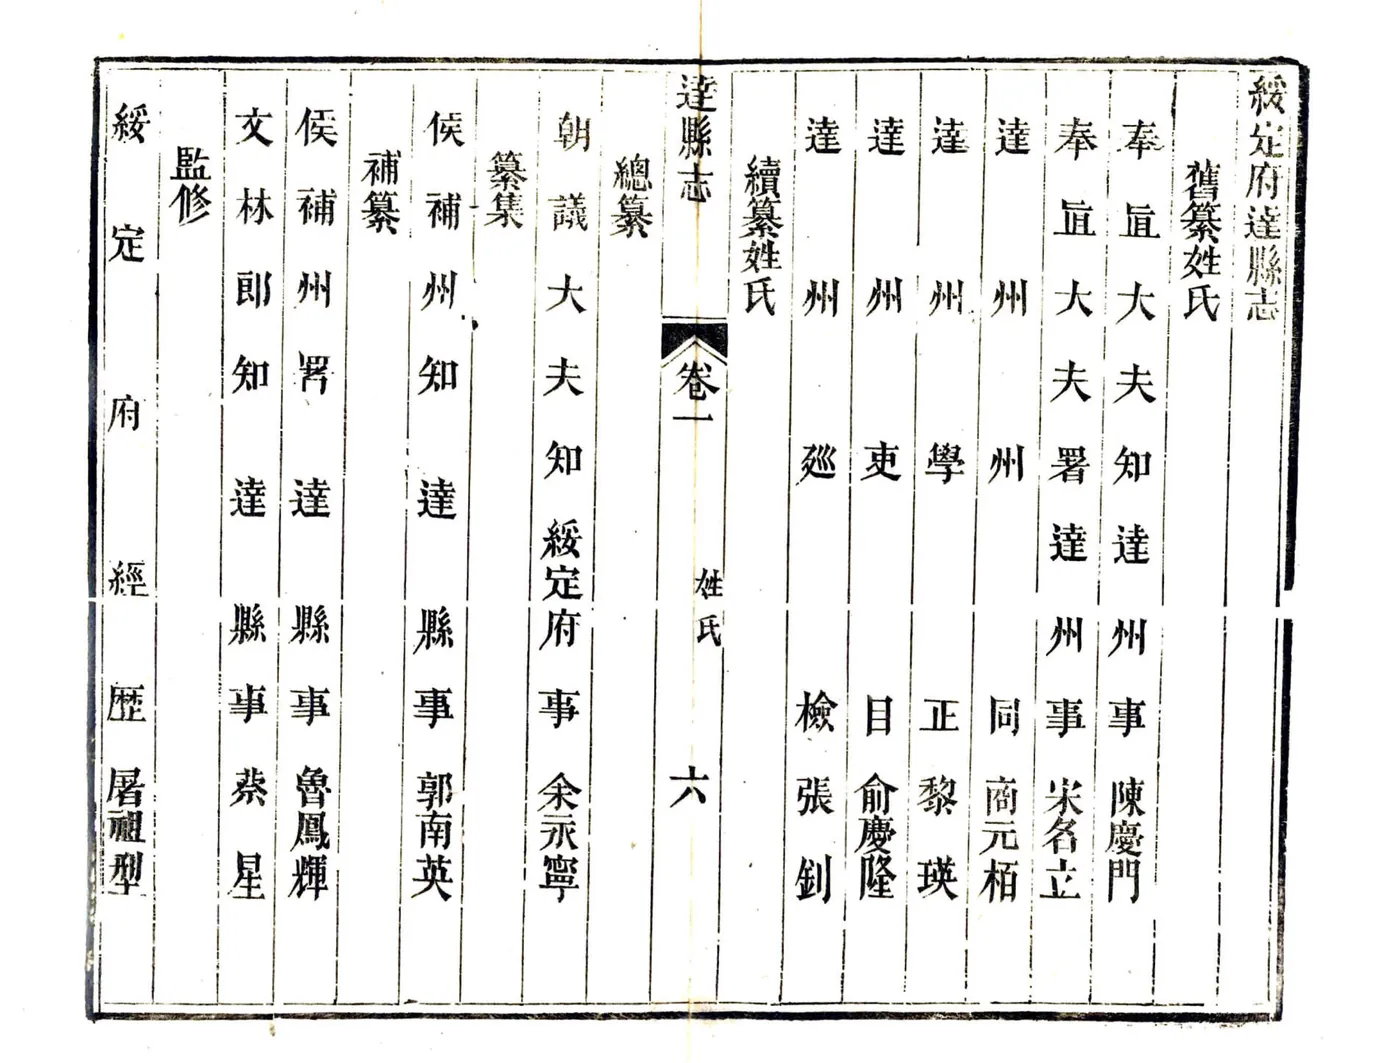 綏定府達縣志
舊纂姓氏
奉旨大夫知達州事陳慶門
奉旨大夫署達州事宋名立
達州州同商元栢
達州學正黎瑛
達州吏目俞慶隆
達州廵檢張釗
續纂姓氏
達縣志
卷一
姓氏
六
總纂
朝議大夫知綏定府事余永寧
纂集
候補州知達縣事郭南英
補纂
候補州署達縣事魯鳳輝
文林郎知達縣事蔡星
監修
綏定府經歷屠祖型